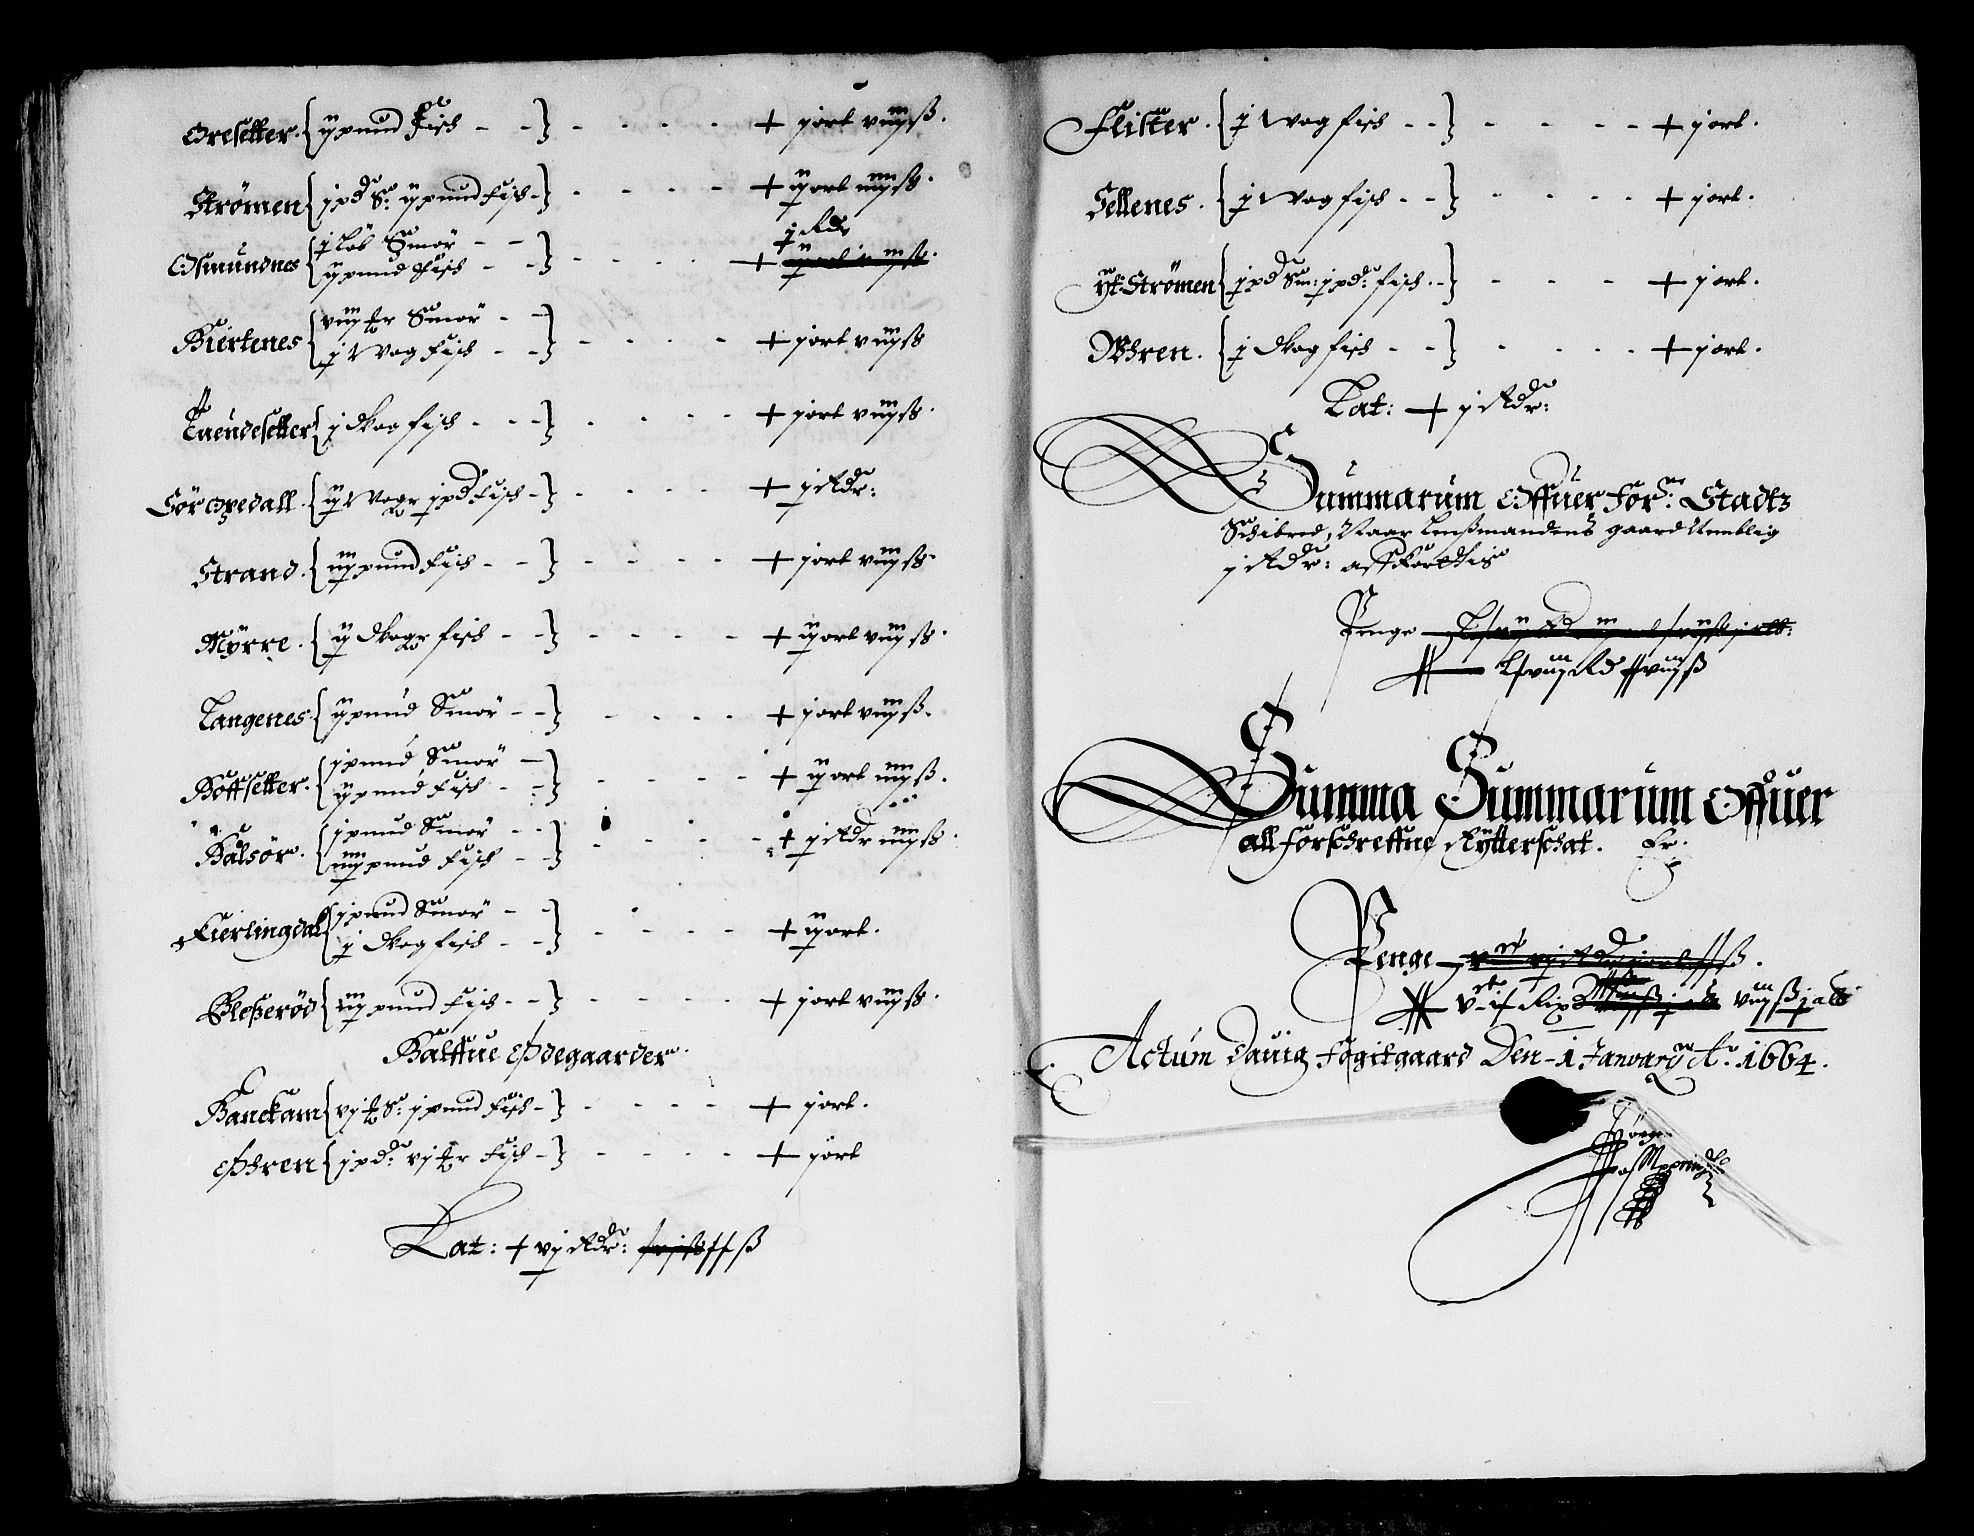 Oresetter. ij pund Fisch - - + j ort viij ß.
Strømen j pd Sr: ij pund Fisch - + ij ort iiij ß.
j Rdr
Osmundnes j Løb Smør - -
ij pund Fisch - - +
Biertenes viij mr Smør - -
j Wog Fisch - - + j ort viij ß
Tuendesetter j Wog fisch - - - + j ort viij ß.
Sør opedall. ij Woger j pd Fisch - + j Rdr:
Strand. iij pund Fisch - - + j ort viij ß.
Mÿrre. ij Woger fisch - - + ij ort viij ß.
Langenes ij pund Smør - - + j ort viij ß.
Bottsetter. j pund Smør -
ij pund Fisch - - + ij ort iiij ß.
Balsør. j pund Smør - -
iiij pund Fisch - - + j Rdr iiij ß.
Kierlingdal j pund Smør - -
j Wog fisch - - + ij ort.
Bleßerød iij pund Fisch - - + j ort viij ß.
Halffue Ødegaarder.
Banckam vj mr Sr: j pund Fisch - + j ort.
Øhren j pd: vj mr Fisch - + j ort
Lat: + vj Rdr: ß
Flister. j Wog fisch - - + j ort.
Sellenes. j Wog fisch - - + j ort.
Yt Strømen j pd Sm: j pd: fisch. - + j ort.
Øhren. j Wog fisch - - + j ort.
Lat: + j Rdr:
Summarum Offuer For: Stadtz
Schibred, Naar Lenßmandens gaard Nemblig
j Rdr: affkorttis
Penge
Summa Summarum Offuer
all forschreffne Rÿtterschat. Er.
Penge
viij ß j alb
Actum Dauig Fogitgaard Den 1 Januarÿ Ao. 1664.